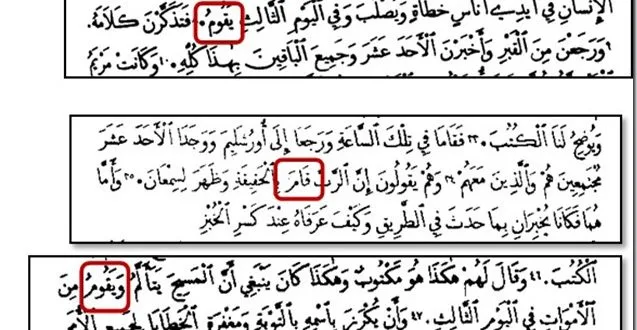 الإِنْسَانِ فِي أَيْدِي أُنَاسٍ خُطَاةٍ وَيُصْلَبَ وَفِي الْيَوْمِ الثَّالِثِ يَقُومُ. ٨ فَتَذَكَّرْنَ كَلَامَهُ
٩ وَرَجَعْنَ مِنَ الْقَبْرِ وَأَخْبَرْنَ الْأَحَدَ عَشَرَ وَجَمِيعَ الْبَاقِينَ بِهٰذَا كُلِّهِ. ١٠ وَكَانَتْ مَرْيَمُ
وَيُوضِحُ لَنَا الْكُتُبَ. ٣٣ فَقَامَا فِي تِلْكَ السَّاعَةِ وَرَجَعَا إِلَى أُورُشَلِيمَ وَوَجَدَا الْأَحَدَ عَشَرَ
مُجْتَمِعِينَ هُمْ وَالَّذِينَ مَعَهُمْ ٣٤ وَهُمْ يَقُولُونَ إِنَّ الرَّبَّ قَامَ بِالْحَقِيقَةِ وَظَهَرَ لِسِمْعَانَ. ٣٥ وَأَمَّا
هُمَا فَكَانَا يُخْبِرَانِ بِمَا حَدَثَ فِي الطَّرِيقِ وَكَيْفَ عَرَفَاهُ عِنْدَ كَسْرِ الْخُبْزِ
الْكُتُبَ. ٤٦ وَقَالَ لَهُمْ هٰكَذَا هُوَ مَكْتُوبٌ وَهٰكَذَا كَانَ يَنْبَغِي أَنَّ الْمَسِيحَ يَتَأَلَّمُ وَيَقُومُ مِنَ
الْأَمْوَاتِ فِي الْيَوْمِ الثَّالِثِ. ٤٧ وَأَنْ يُكْرَزَ بِاسْمِهِ بِالتَّوْبَةِ وَمَغْفِرَةِ الْخَطَايَا لِجَمِيعِ الْأُمَمِ